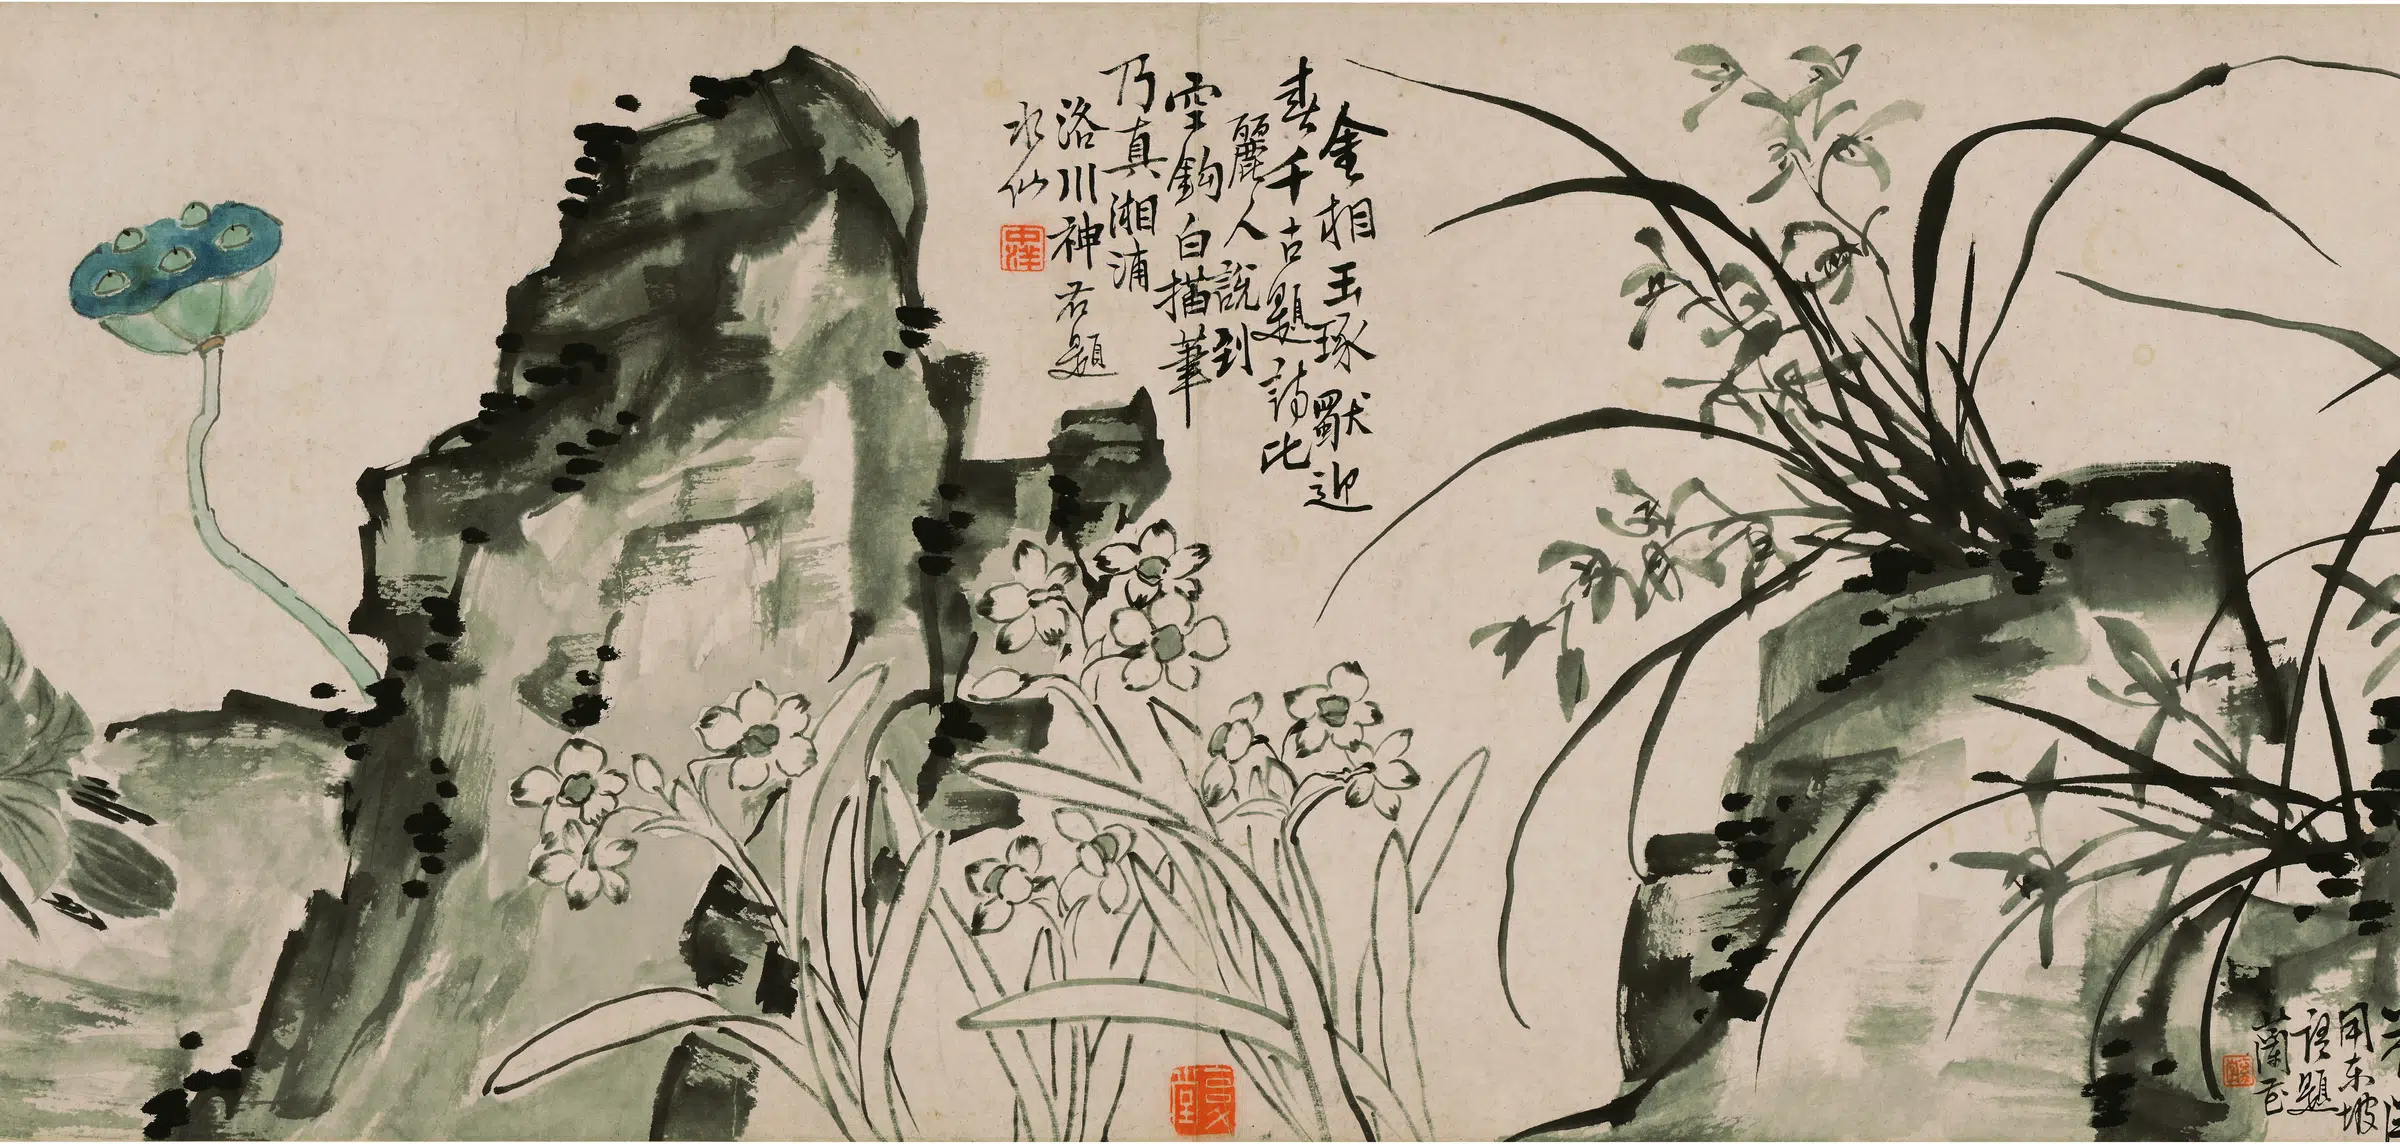 金相玉琢獸迎
春千古題詩比
麗人說到
雙鈎白描筆
乃真湘浦
洛川神 右題
水仙
用東坡
語題
蘭花